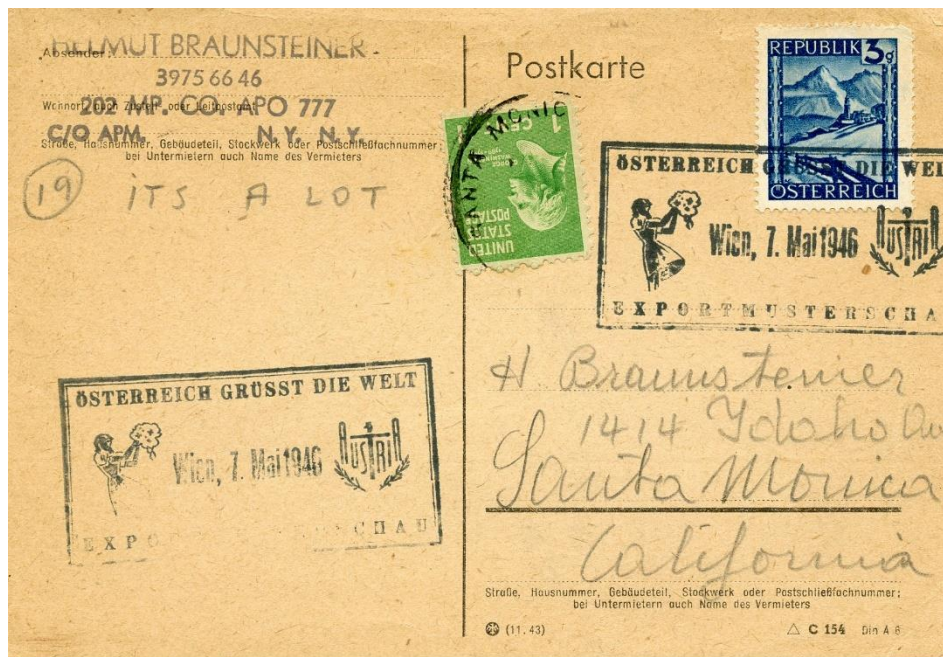 Absender:
HELMUT BRAUNSTEINER
3975 66 46
Wohnort, auch Zustell- oder Leitpostamt
202 MP. CO. APO 777
C/O APM. N. Y. N. Y.
Straße, Hausnummer, Gebäudeteil, Stockwerk oder Postschließfachnummer
bei Untermietern auch Name des Vermieters
19 ITS A LOT
ÖSTERREICH GRÜSST DIE WELT
Wien, 7. Mai 1946 AUSTRIA
EXPO SCHAU
Postkarte
SANTA MONIC
1 CENT
UNITED
STATES
POSTAGE
REPUBLIK 3g
ÖSTERREICH
ÖSTERREICH GRÜSST DIE WEL
Wien, 7. Mai 1946 AUSTRIA
EXPORTMUSTERSCHA
H Braunsteiner
1414 Idaho Av
Santa Monica
California
Straße, Hausnummer, Gebäudeteil, Stockwerk oder Postschließfachnummer;
bei Untermietern auch Name des Vermieters
(11. 43) C 154 Din A 6